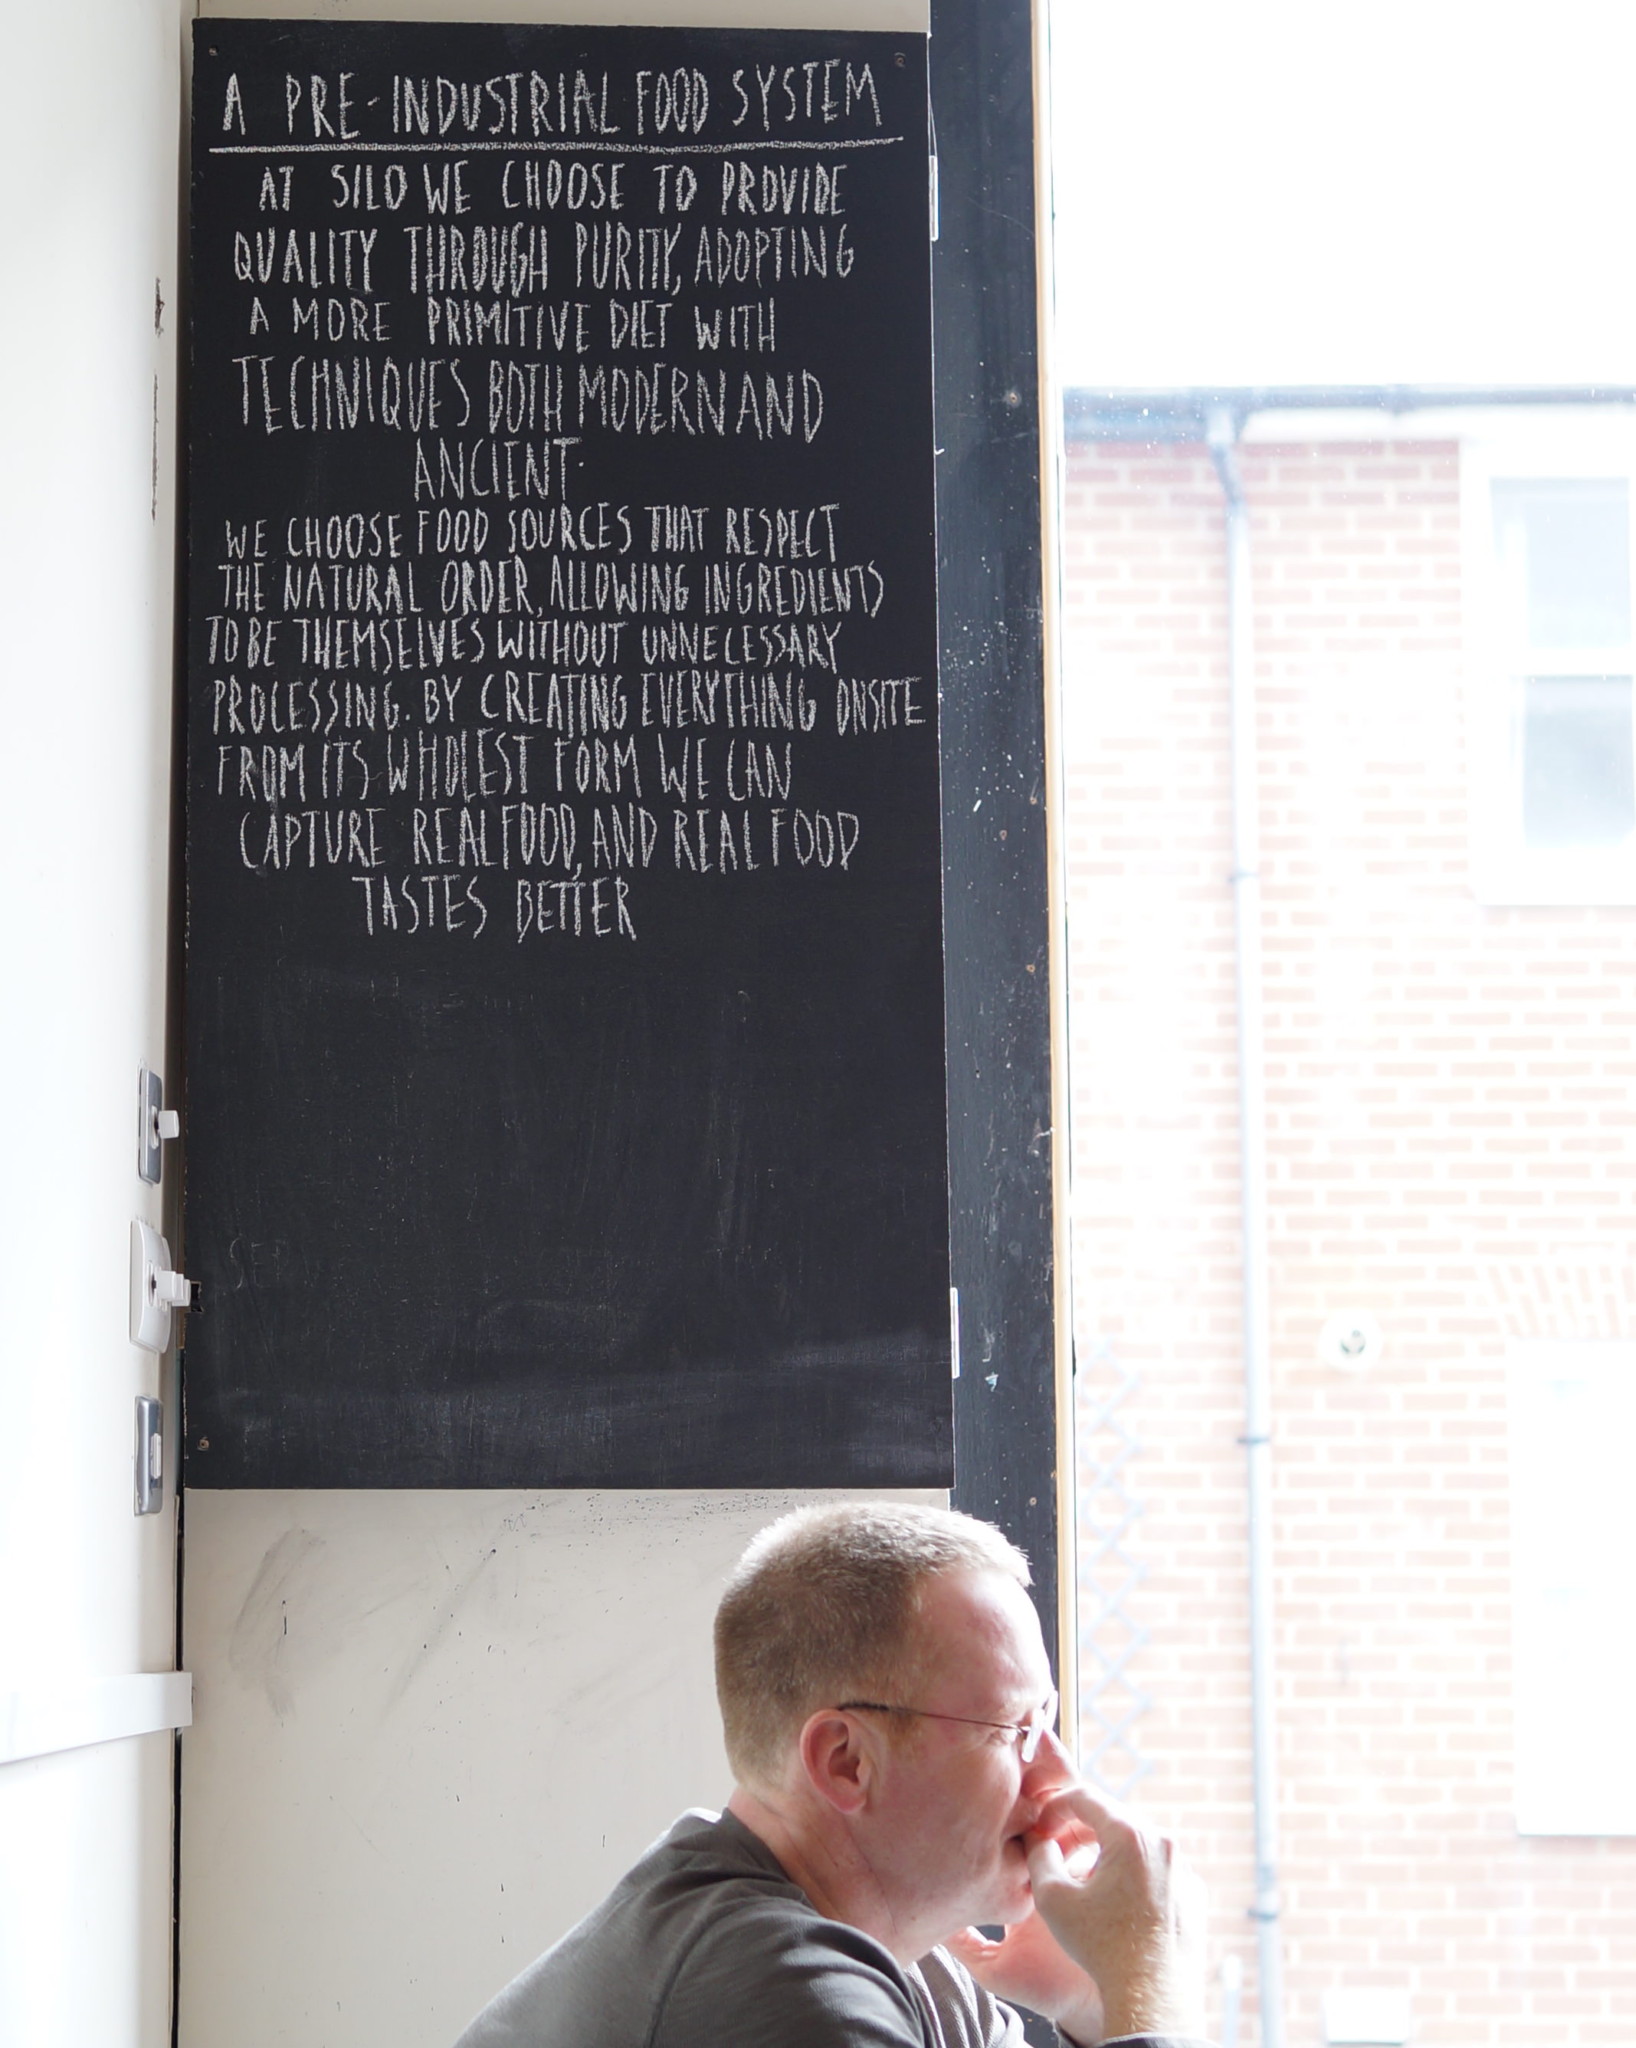 A PRE-INDUSTRIAL FOOD SYSTEM
AT SILO WE CHOOSE TO PROVIDE
QUALITY THROUGH PURITY, ADOPTING
A MORE PRIMITIVE DIET WITH
TECHNIQUES BOTH MODERN AND
ANCIENT.
WE CHOOSE FOOD SOURCES THAT RESPECT
THE NATURAL ORDER, ALLOWING INGREDIENTS
TO BE THEMSELVES WITHOUT UNNECESSARY
PROCESSING. BY CREATING EVERYTHING ONSITE
FROM ITS WHOLEST FORM WE CAN
CAPTURE REAL FOOD, AND REAL FOOD
TASTES BETTER